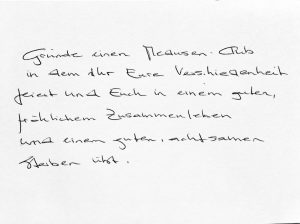 Gründe einen Medusen-Club
in dem Ihr Eure Verschiedenheit
feiert und Euch in einem guten,
fröhlichem Zusammenleben
und einem guten, achtsamen
Sterben übt.